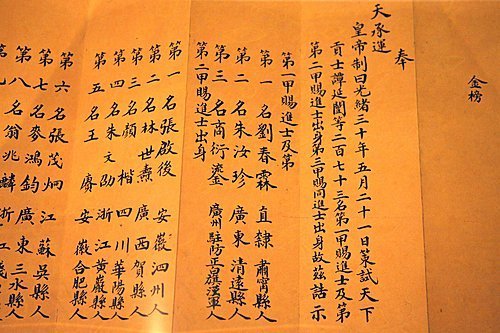 金榜
奉
天承運
皇帝制曰光緒三十年五月二十一日策試天下
貢士譚延闓等二百七十三名第一甲賜進士及第
第二甲賜進士出身第三甲賜同進士出身故茲誥示
第一甲賜進士及第
第一名劉春霖 直隸肅寧縣人
第二名朱汝珍 廣東清遠縣人
第三名商衍鎏 廣州駐防正白旗漢軍人
第二甲賜進士出身
第一名張啟後 安徽泗州人
第二名林世燾 廣西賀縣人
第三名顏楷 四川華陽縣人
第四名朱文劭 浙江黃巖縣人
第五名王賡 安徽合肥縣人
第六名張茂炯 江蘇吳縣人
第七名麥鴻鈞 廣東三水縣人
第八名翁兆麟 浙江
第九